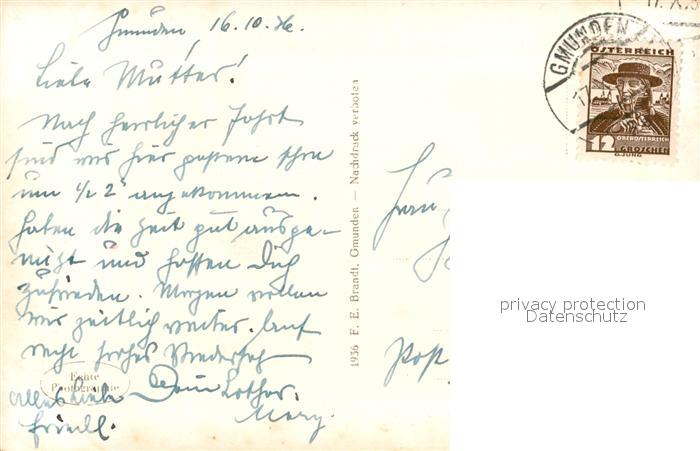 Gmunden 16.10.36.
Liebe Mutter!
Nach herrlicher Fahrt
sind wir hier gestern schon
um 1/2 2 angekommen.
Haben die Zeit gut ausge-
nützt und hoffen Dich
zufrieden. Morgen wollen
wir zeitlich weiter. Auf
recht frohes Wiedersehn
Dein Lothar.
Alles Liebe
Friedl.
Echte
Photographie
1936 F. E. Brandt, Gmunden — Nachdruck verboten
Frau
Post
GMUNDEN
ÖSTERREICH
OBERÖSTERREICH
12 GROSCHEN
G.JUNG
privacy protection
Datenschutz